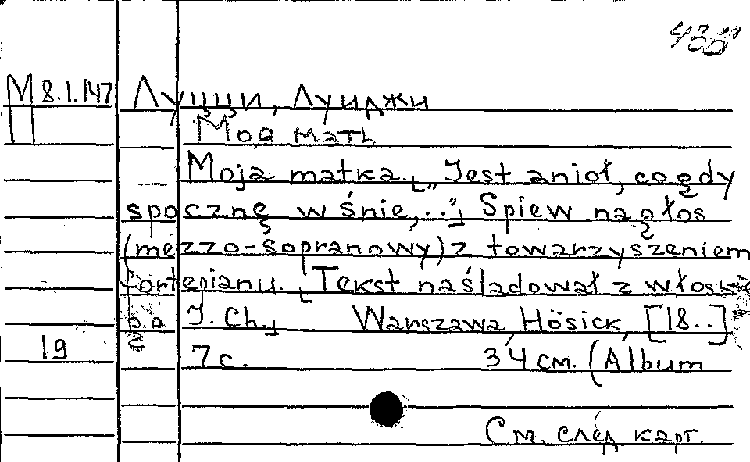 М 8.1.147 Луцци, Луиджи
П Моя мать
Moja matka. [„Jest anioł, co gdy
spocznę w śnie,.."] Śpiew na głos
(mezzo-sopranowy) z towarzyszeniem
fortepianu. [Tekst naśladował z włosk.
J. Ch.] Warszawa, Hösick, [18..]
19 7 с. 34 см. (Album
См. след карт.